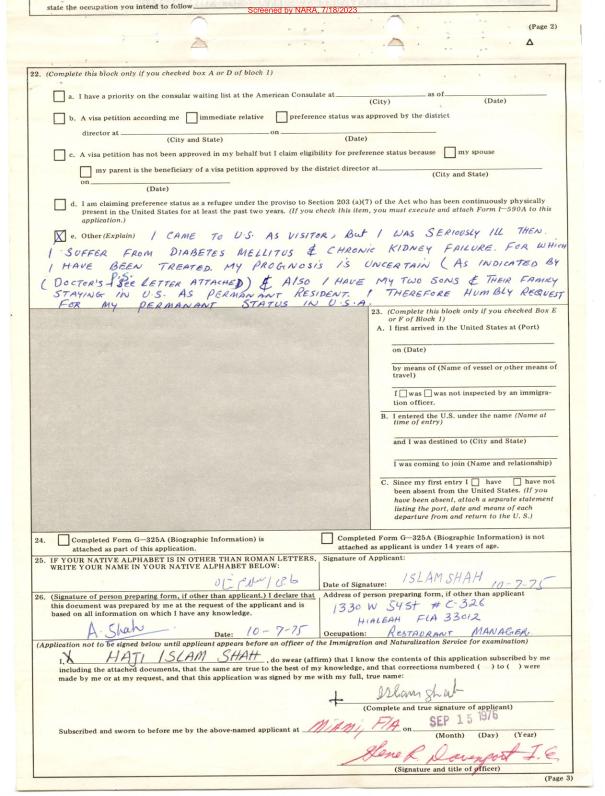 state the occupation you intend to follow
Screened by NARA, 7/18/2023
(Page 2)
22. (Complete this block only if you checked box A or D of block 1)
a. I have a priority on the consular waiting list at the American Consulate at as of
(City) (Date)
b. A visa petition according me immediate relative preference status was approved by the district
director at on
(City and State) (Date)
c. A visa petition has not been approved in my behalf but I claim eligibility for preference status because my spouse
my parent is the beneficiary of a visa petition approved by the district director at
(City and State)
on
(Date)
d. I am claiming preference status as a refugee under the proviso to Section 203 (a)(7) of the Act who has been continuously physically
present in the United States for at least the past two years. (If you check this item, you must execute and attach Form I-590A to this
application.)
X e. Other (Explain) I CAME TO U.S. AS VISITOR, BUT I WAS SERIOUSLY ILL THEN.
I SUFFER FROM DIABETES MELLITUS & CHRONIC KIDNEY FAILURE. FOR WHICH
I HAVE BEEN TREATED. MY PROGNOSIS IS UNCERTAIN (AS INDICATED BY
P.S.
(DOCTOR'S SEE LETTER ATTACHED) & ALSO I HAVE MY TWO SONS & THEIR FAMILY
STAYING IN U.S. AS PERMANANT RESIDENT. I THEREFORE HUMBLY REQUEST
FOR MY PERMANANT STATUS IN U.S.A.
23. (Complete this block only if you checked Box E
or F of Block 1)
A. I first arrived in the United States at (Port)
on (Date)
by means of (Name of vessel or other means of
travel)
I was was not inspected by an immigra-
tion officer.
B. I entered the U.S. under the name (Name at
time of entry)
and I was destined to (City and State)
I was coming to join (Name and relationship)
C. Since my first entry I have have not
been absent from the United States. (If you
have been absent, attach a separate statement
listing the port, date and means of each
departure from and return to the U. S.)
24. Completed Form G-325A (Biographic Information) is
attached as part of this application.
Completed Form G-325A (Biographic Information) is not
attached as applicant is under 14 years of age.
25. IF YOUR NATIVE ALPHABET IS IN OTHER THAN ROMAN LETTERS,
WRITE YOUR NAME IN YOUR NATIVE ALPHABET BELOW:
Signature of Applicant:
Date of Signature: ISLAMSHAH 10-7-75
26. (Signature of person preparing form, if other than applicant.) I declare that
this document was prepared by me at the request of the applicant and is
based on all information on which I have any knowledge.
A. Shah Date: 10-7-75
Address of person preparing form, if other than applicant
1330 W 54 St # C-326
HIALEAH FLA 33012
Occupation: RESTAURANT MANAGER
(Application not to be signed below until applicant appears before an officer of the Immigration and Naturalization Service for examination)
I, X HAJI ISLAM SHAH, do swear (affirm) that I know the contents of this application subscribed by me
including the attached documents, that the same are true to the best of my knowledge, and that corrections numbered ( ) to ( ) were
made by me or at my request, and that this application was signed by me with my full, true name:
Islam shah
(Complete and true signature of applicant)
Subscribed and sworn to before me by the above-named applicant at MiAmi, FlA on SEP 15 1976
(Month) (Day) (Year)
Gene R. Davenport I.E.
(Signature and title of officer)
(Page 3)